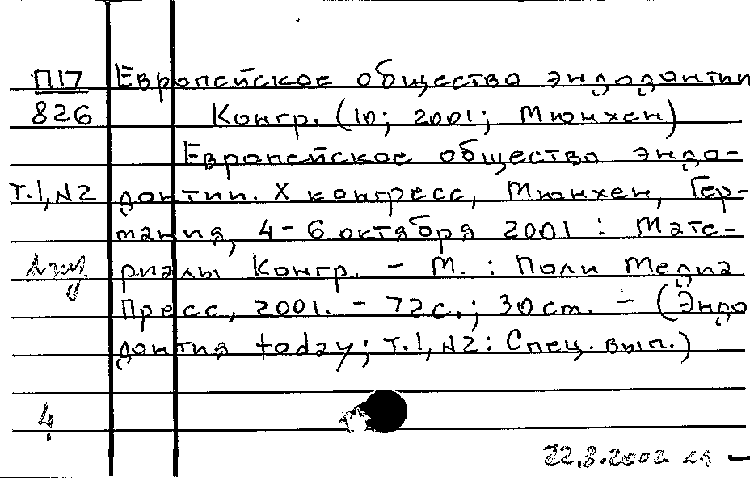 П17 Европейское общество эндодонтии
826 Конгр. (10; 2001; Мюнхен)
Европейское общество эндо-
Т.1, N2 донтии. X конгресс, Мюнхен, Гер-
мания, 4-6 октября 2001 : Мате-
риалы Конгр. - М. : Поли Медиа
Пресс, 2001. - 72с.; 30см. - (Эндо
донтия today; Т.1, N2: Спец. вып.)
4
22.8.2002